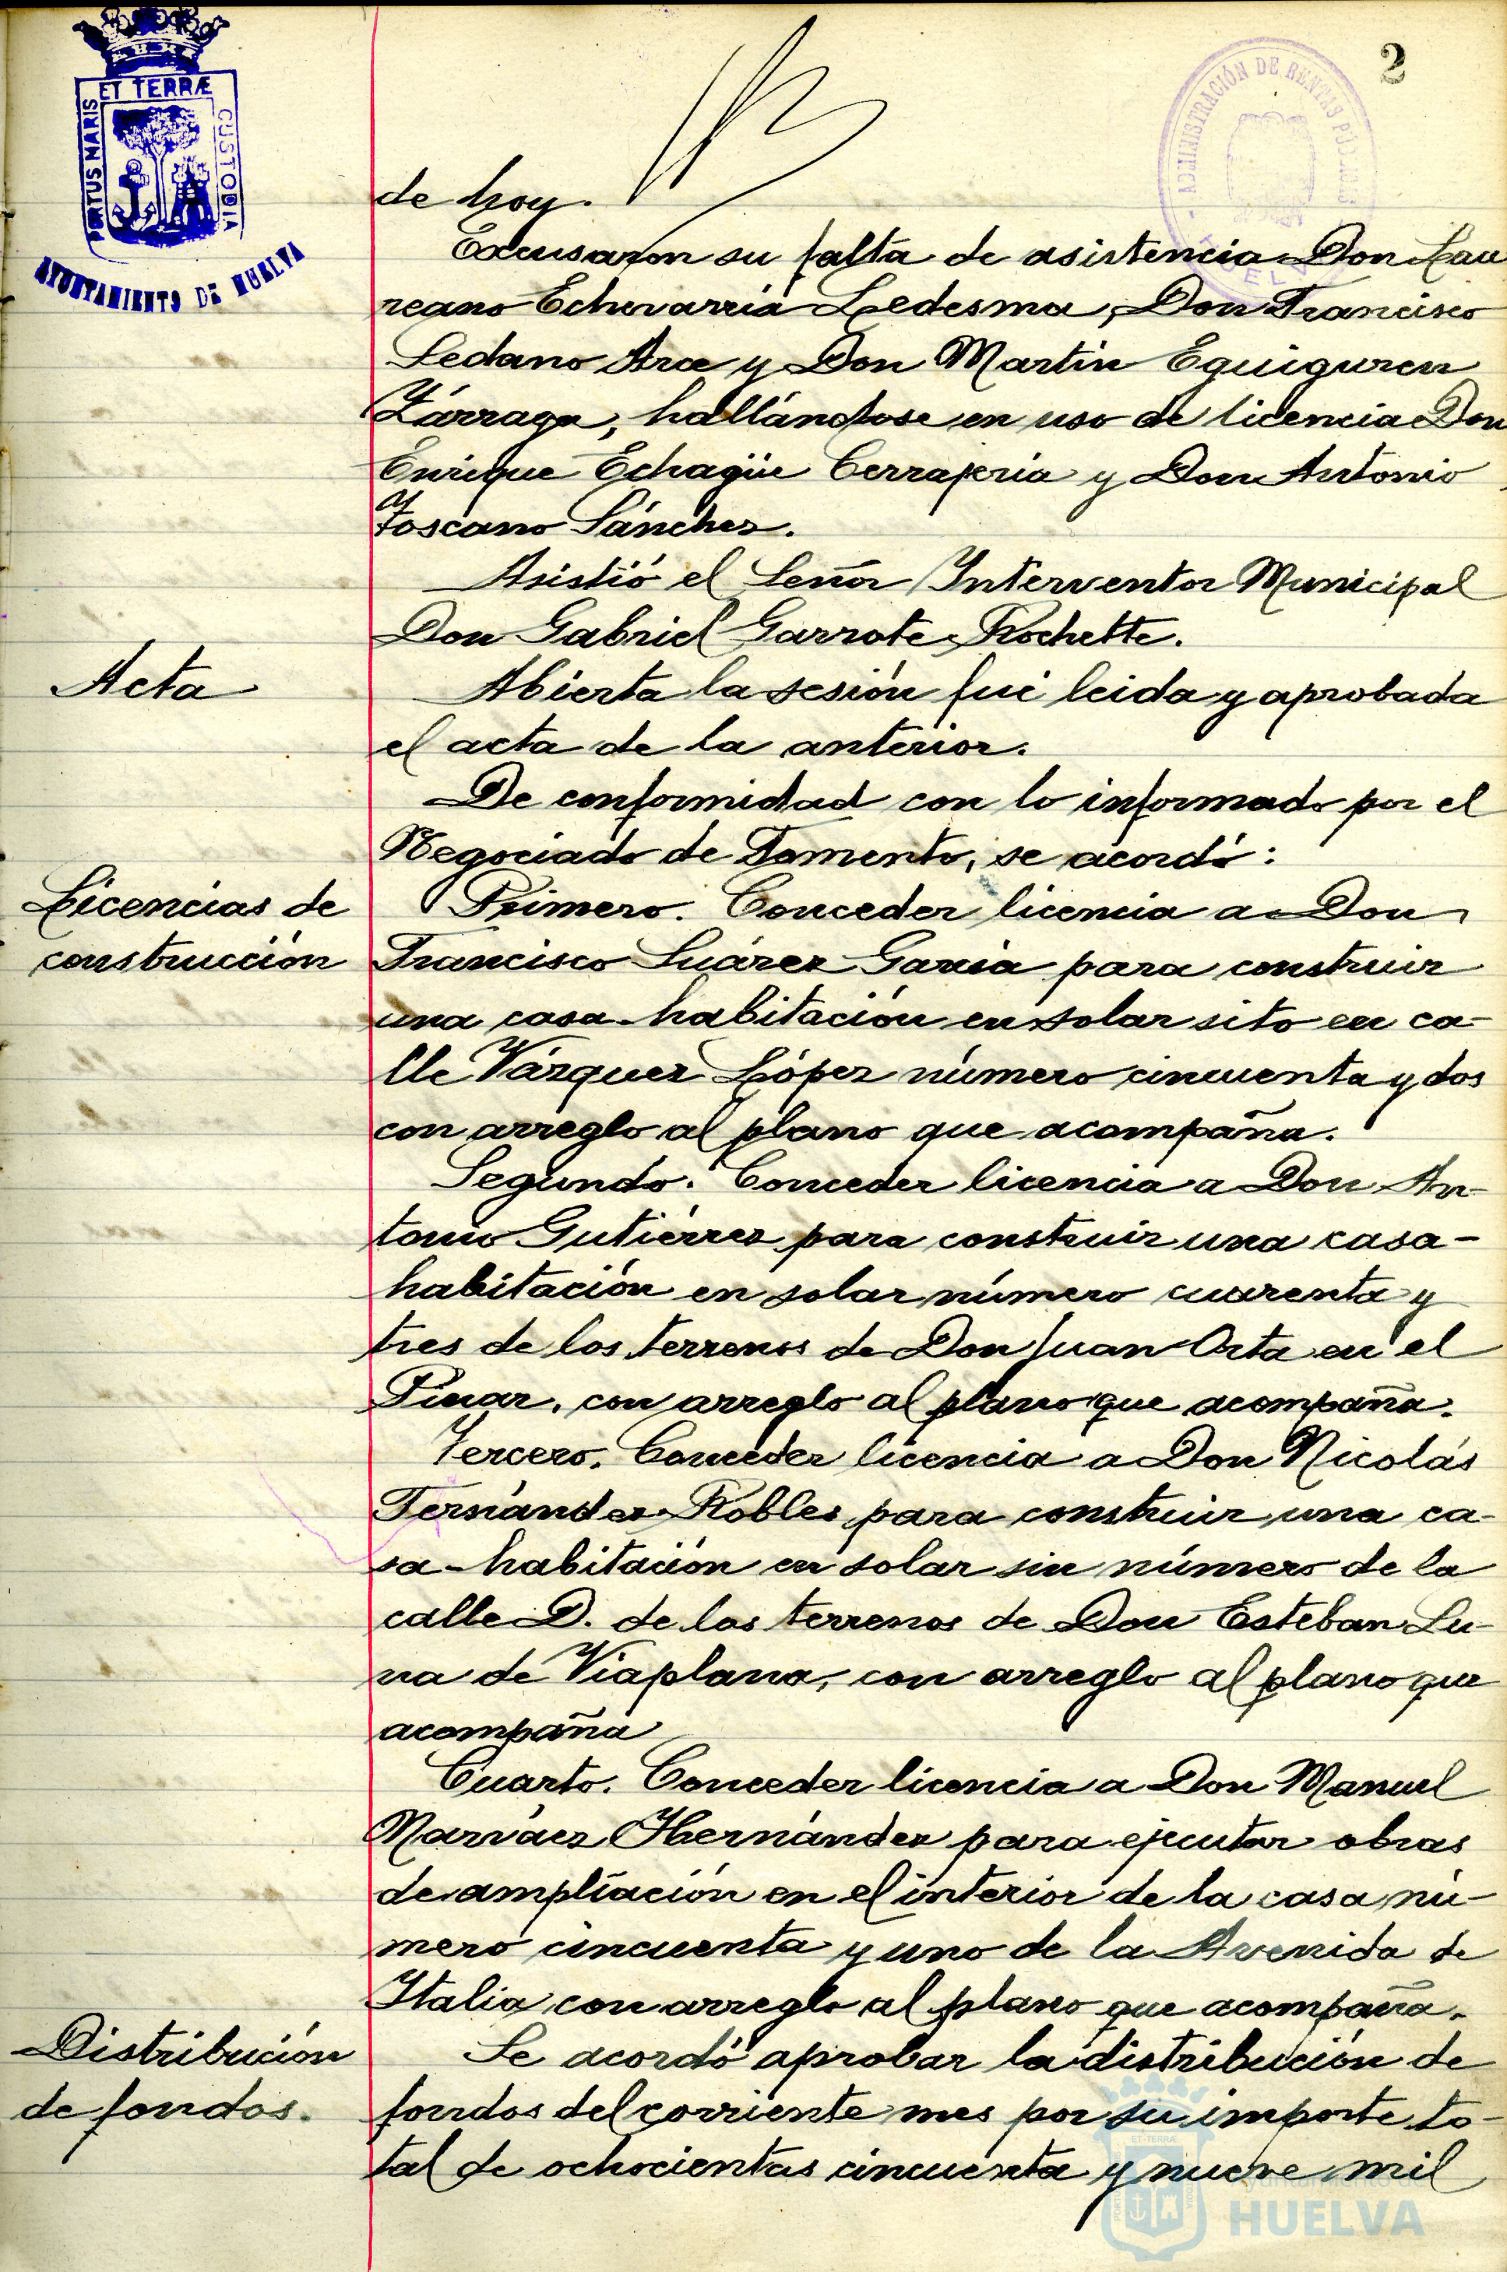 2
ET TERRÆ
PORTUS MARIS
CUSTODIA
AYUNTAMIENTO DE HUELVA
ADMINISTRACIÓN DE RENTAS PÚBLICAS
HUELVA
de hoy.
Excusaron su falta de asistencia Don Lau
reano Echevarria Ledesma, Don Francisco
Sedano Arce y Don Martín Eguiguren
Zárraga, hallándose en uso de licencia Don
Enrique Echagüe Cerrajeria y Don Antonio
Toscano Sánchez.
Asistió el Señor Interventor Municipal
Don Gabriel Garrote Rochette.
Acta
Abierta la sesión fué leida y aprobada
el acta de la anterior.
De conformidad con lo informado por el
Negociado de Fomento, se acordó:
Licencias de
construcción
Primero. Conceder licencia a Don
Francisco Suárez García para construir
una casa-habitación en solar sito en ca-
lle Vázquez López número cincuenta y dos
con arreglo al plano que acompaña.
Segundo. Conceder licencia a Don An-
tonio Gutiérrez para construir una casa-
habitación en solar número cuarenta y
tres de los terrenos de Don Juan Orta en el
Pinar, con arreglo al plano que acompaña.
Tercero. Conceder licencia a Don Nicolás
Fernández Robles para construir una ca-
sa-habitación en solar sin número de la
calle D. de los terrenos de Don Esteban Lu-
na de Viaplana, con arreglo al plano que
acompaña
Cuarto. Conceder licencia a Don Manuel
Narváez Hernández para ejecutar obras
de ampliación en el interior de la casa nú-
mero cincuenta y uno de la Avenida de
Italia con arreglo al plano que acompaña.
Distribución
de fondos.
Se acordó aprobar la distribución de
fondos del corriente mes por su importe to-
tal de ochocientas cincuenta y nueve mil
Ayuntamiento de
HUELVA